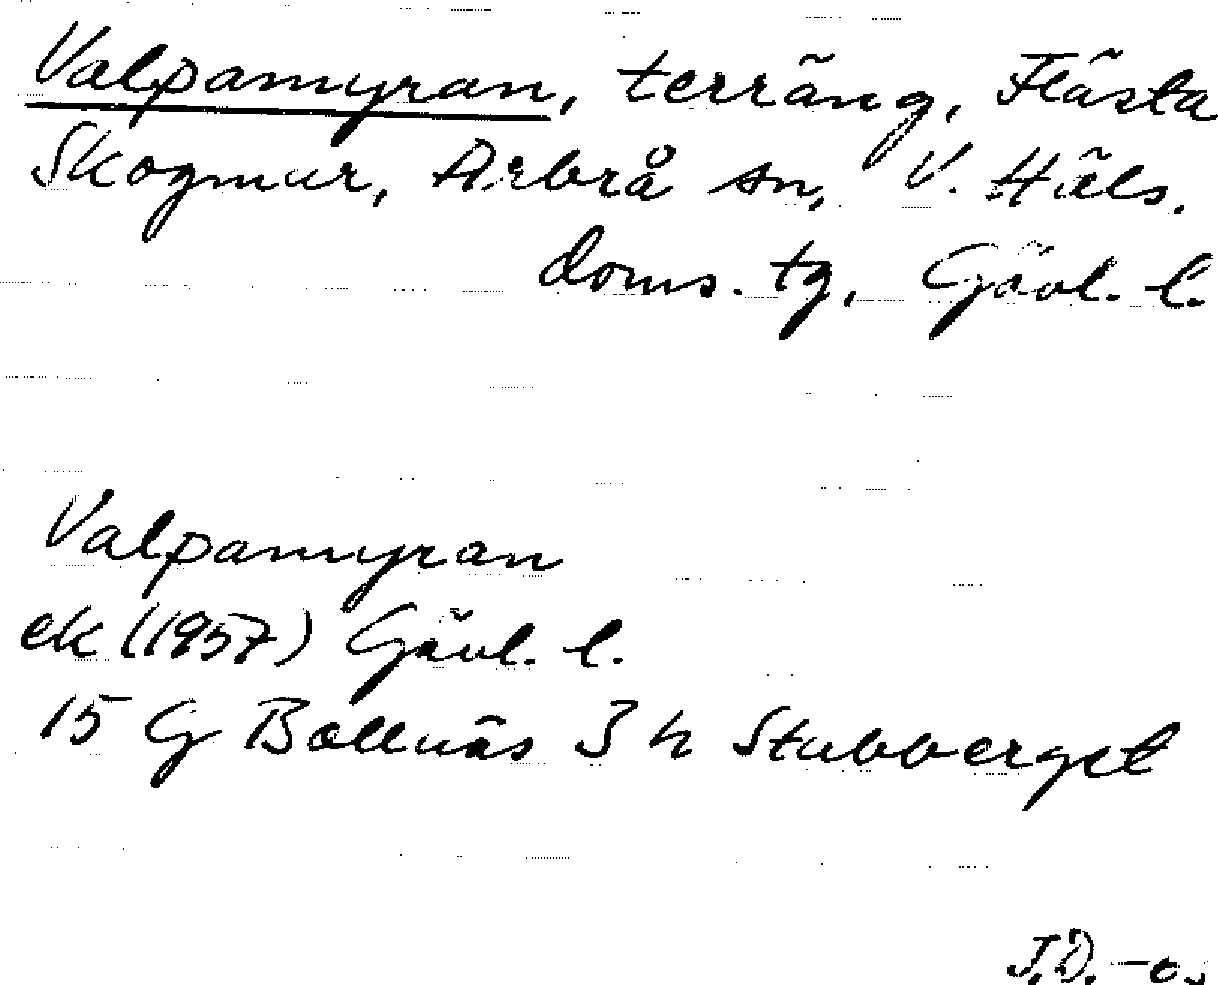 Valpamyran, terräng, Flästa
Skogmur, Arbrå sn, V. Häls.
doms. tg, Gävl. l.
Valpamyran
ek (1957) Gävl. l.
15 G Bollnäs 3 h Stubberget
J.D.